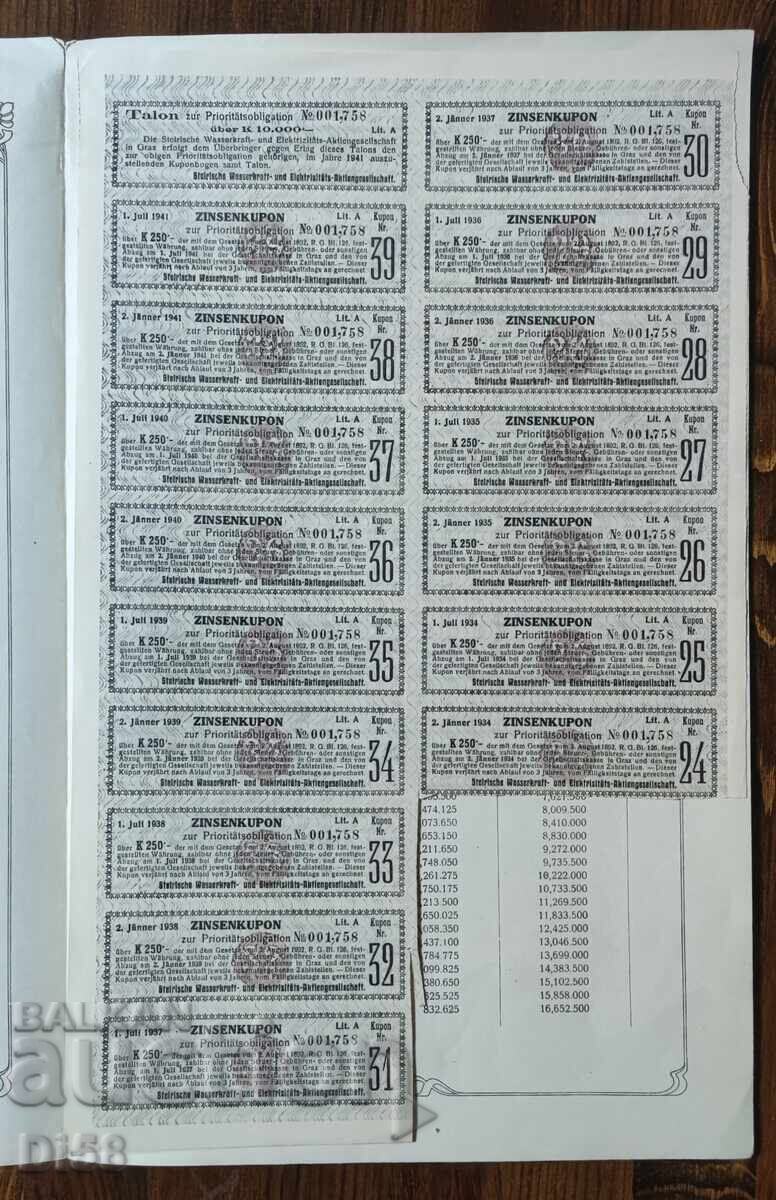 Talon zur Prioritätsobligation № 001,758
über K 10.000·— Lit. A
Die Steirische Wasserkraft- und Elektrizitäts-Aktiengesellschaft
in Graz erfolgt dem Überbringer gegen Erlag dieses Talons den
zur obigen Prioritätsobligation gehörigen, im Jahre 1941 auszu-
stellenden Kuponbogen samt Talon.
Steirische Wasserkraft- und Elektrizitäts-Aktiengesellschaft.
1. Juli 1941 ZINSENKUPON Lit. A Kupon Nr. 39
zur Prioritätsobligation № 001,758
über K 250·- der mit dem Gesetze vom 2. August 1892, R. G. Bl. 126, fest-
gestellten Währung, zahlbar ohne jeden Steuer-, Gebühren- oder sonstigen
Abzug am 1. Juli 1941 bei der Gesellschaftskasse in Graz und den von
der gefertigten Gesellschaft jeweils bekanntgegebenen Zahlstellen. — Dieser
Kupon verjährt nach Ablauf von 3 Jahren, vom Fälligkeitstage an gerechnet.
Steirische Wasserkraft- und Elektrizitäts-Aktiengesellschaft.
2. Jänner 1941 ZINSENKUPON Lit. A Kupon Nr. 38
zur Prioritätsobligation № 001,758
über K 250·- der mit dem Gesetze vom 2. August 1892, R. G. Bl. 126, fest-
gestellten Währung, zahlbar ohne jeden Steuer-, Gebühren- oder sonstigen
Abzug am 2. Jänner 1941 bei der Gesellschaftskasse in Graz und den von
der gefertigten Gesellschaft jeweils bekanntgegebenen Zahlstellen. — Dieser
Kupon verjährt nach Ablauf von 3 Jahren, vom Fälligkeitstage an gerechnet.
Steirische Wasserkraft- und Elektrizitäts-Aktiengesellschaft.
1. Juli 1940 ZINSENKUPON Lit. A Kupon Nr. 37
zur Prioritätsobligation № 001,758
über K 250·- der mit dem Gesetze vom 2. August 1892, R. G. Bl. 126, fest-
gestellten Währung, zahlbar ohne jeden Steuer-, Gebühren- oder sonstigen
Abzug am 1. Juli 1940 bei der Gesellschaftskasse in Graz und den von
der gefertigten Gesellschaft jeweils bekanntgegebenen Zahlstellen. — Dieser
Kupon verjährt nach Ablauf von 3 Jahren, vom Fälligkeitstage an gerechnet.
Steirische Wasserkraft- und Elektrizitäts-Aktiengesellschaft.
2. Jänner 1940 ZINSENKUPON Lit. A Kupon Nr. 36
zur Prioritätsobligation № 001,758
über K 250·- der mit dem Gesetze vom 2. August 1892, R. G. Bl. 126, fest-
gestellten Währung, zahlbar ohne jeden Steuer-, Gebühren- oder sonstigen
Abzug am 2. Jänner 1940 bei der Gesellschaftskasse in Graz und den von
der gefertigten Gesellschaft jeweils bekanntgegebenen Zahlstellen. — Dieser
Kupon verjährt nach Ablauf von 3 Jahren, vom Fälligkeitstage an gerechnet.
Steirische Wasserkraft- und Elektrizitäts-Aktiengesellschaft.
1. Juli 1939 ZINSENKUPON Lit. A Kupon Nr. 35
zur Prioritätsobligation № 001,758
über K 250·- der mit dem Gesetze vom 2. August 1892, R. G. Bl. 126, fest-
gestellten Währung, zahlbar ohne jeden Steuer-, Gebühren- oder sonstigen
Abzug am 1. Juli 1939 bei der Gesellschaftskasse in Graz und den von
der gefertigten Gesellschaft jeweils bekanntgegebenen Zahlstellen. — Dieser
Kupon verjährt nach Ablauf von 3 Jahren, vom Fälligkeitstage an gerechnet.
Steirische Wasserkraft- und Elektrizitäts-Aktiengesellschaft.
2. Jänner 1939 ZINSENKUPON Lit. A Kupon Nr. 34
zur Prioritätsobligation № 001,758
über K 250·- der mit dem Gesetze vom 2. August 1892, R. G. Bl. 126, fest-
gestellten Währung, zahlbar ohne jeden Steuer-, Gebühren- oder sonstigen
Abzug am 2. Jänner 1939 bei der Gesellschaftskasse in Graz und den von
der gefertigten Gesellschaft jeweils bekanntgegebenen Zahlstellen. — Dieser
Kupon verjährt nach Ablauf von 3 Jahren, vom Fälligkeitstage an gerechnet.
Steirische Wasserkraft- und Elektrizitäts-Aktiengesellschaft.
1. Juli 1938 ZINSENKUPON Lit. A Kupon Nr. 33
zur Prioritätsobligation № 001,758
über K 250·- der mit dem Gesetze vom 2. August 1892, R. G. Bl. 126, fest-
gestellten Währung, zahlbar ohne jeden Steuer-, Gebühren- oder sonstigen
Abzug am 1. Juli 1938 bei der Gesellschaftskasse in Graz und den von
der gefertigten Gesellschaft jeweils bekanntgegebenen Zahlstellen. — Dieser
Kupon verjährt nach Ablauf von 3 Jahren, vom Fälligkeitstage an gerechnet.
Steirische Wasserkraft- und Elektrizitäts-Aktiengesellschaft.
2. Jänner 1938 ZINSENKUPON Lit. A Kupon Nr. 32
zur Prioritätsobligation № 001,758
über K 250·- der mit dem Gesetze vom 2. August 1892, R. G. Bl. 126, fest-
gestellten Währung, zahlbar ohne jeden Steuer-, Gebühren- oder sonstigen
Abzug am 2. Jänner 1938 bei der Gesellschaftskasse in Graz und den von
der gefertigten Gesellschaft jeweils bekanntgegebenen Zahlstellen. — Dieser
Kupon verjährt nach Ablauf von 3 Jahren, vom Fälligkeitstage an gerechnet.
Steirische Wasserkraft- und Elektrizitäts-Aktiengesellschaft.
1. Juli 1937 ZINSENKUPON Lit. A Kupon Nr. 31
zur Prioritätsobligation № 001,758
über K 250·- der mit dem Gesetze vom 2. August 1892, R. G. Bl. 126, fest-
gestellten Währung, zahlbar ohne jeden Steuer-, Gebühren- oder sonstigen
Abzug am 1. Juli 1937 bei der Gesellschaftskasse in Graz und den von
der gefertigten Gesellschaft jeweils bekanntgegebenen Zahlstellen. — Dieser
Kupon verjährt nach Ablauf von 3 Jahren, vom Fälligkeitstage an gerechnet.
Steirische Wasserkraft- und Elektrizitäts-Aktiengesellschaft.
2. Jänner 1937 ZINSENKUPON Lit. A Kupon Nr. 30
zur Prioritätsobligation № 001,758
über K 250·- der mit dem Gesetze vom 2. August 1892, R. G. Bl. 126, fest-
gestellten Währung, zahlbar ohne jeden Steuer-, Gebühren- oder sonstigen
Abzug am 2. Jänner 1937 bei der Gesellschaftskasse in Graz und den von
der gefertigten Gesellschaft jeweils bekanntgegebenen Zahlstellen. — Dieser
Kupon verjährt nach Ablauf von 3 Jahren, vom Fälligkeitstage an gerechnet.
Steirische Wasserkraft- und Elektrizitäts-Aktiengesellschaft.
1. Juli 1936 ZINSENKUPON Lit. A Kupon Nr. 29
zur Prioritätsobligation № 001,758
über K 250·- der mit dem Gesetze vom 2. August 1892, R. G. Bl. 126, fest-
gestellten Währung, zahlbar ohne jeden Steuer-, Gebühren- oder sonstigen
Abzug am 1. Juli 1936 bei der Gesellschaftskasse in Graz und den von
der gefertigten Gesellschaft jeweils bekanntgegebenen Zahlstellen. — Dieser
Kupon verjährt nach Ablauf von 3 Jahren, vom Fälligkeitstage an gerechnet.
Steirische Wasserkraft- und Elektrizitäts-Aktiengesellschaft.
2. Jänner 1936 ZINSENKUPON Lit. A Kupon Nr. 28
zur Prioritätsobligation № 001,758
über K 250·- der mit dem Gesetze vom 2. August 1892, R. G. Bl. 126, fest-
gestellten Währung, zahlbar ohne jeden Steuer-, Gebühren- oder sonstigen
Abzug am 2. Jänner 1936 bei der Gesellschaftskasse in Graz und den von
der gefertigten Gesellschaft jeweils bekanntgegebenen Zahlstellen. — Dieser
Kupon verjährt nach Ablauf von 3 Jahren, vom Fälligkeitstage an gerechnet.
Steirische Wasserkraft- und Elektrizitäts-Aktiengesellschaft.
1. Juli 1935 ZINSENKUPON Lit. A Kupon Nr. 27
zur Prioritätsobligation № 001,758
über K 250·- der mit dem Gesetze vom 2. August 1892, R. G. Bl. 126, fest-
gestellten Währung, zahlbar ohne jeden Steuer-, Gebühren- oder sonstigen
Abzug am 1. Juli 1935 bei der Gesellschaftskasse in Graz und den von
der gefertigten Gesellschaft jeweils bekanntgegebenen Zahlstellen. — Dieser
Kupon verjährt nach Ablauf von 3 Jahren, vom Fälligkeitstage an gerechnet.
Steirische Wasserkraft- und Elektrizitäts-Aktiengesellschaft.
2. Jänner 1935 ZINSENKUPON Lit. A Kupon Nr. 26
zur Prioritätsobligation № 001,758
über K 250·- der mit dem Gesetze vom 2. August 1892, R. G. Bl. 126, fest-
gestellten Währung, zahlbar ohne jeden Steuer-, Gebühren- oder sonstigen
Abzug am 2. Jänner 1935 bei der Gesellschaftskasse in Graz und den von
der gefertigten Gesellschaft jeweils bekanntgegebenen Zahlstellen. — Dieser
Kupon verjährt nach Ablauf von 3 Jahren, vom Fälligkeitstage an gerechnet.
Steirische Wasserkraft- und Elektrizitäts-Aktiengesellschaft.
1. Juli 1934 ZINSENKUPON Lit. A Kupon Nr. 25
zur Prioritätsobligation № 001,758
über K 250·- der mit dem Gesetze vom 2. August 1892, R. G. Bl. 126, fest-
gestellten Währung, zahlbar ohne jeden Steuer-, Gebühren- oder sonstigen
Abzug am 1. Juli 1934 bei der Gesellschaftskasse in Graz und den von
der gefertigten Gesellschaft jeweils bekanntgegebenen Zahlstellen. — Dieser
Kupon verjährt nach Ablauf von 3 Jahren, vom Fälligkeitstage an gerechnet.
Steirische Wasserkraft- und Elektrizitäts-Aktiengesellschaft.
2. Jänner 1934 ZINSENKUPON Lit. A Kupon Nr. 24
zur Prioritätsobligation № 001,758
über K 250·- der mit dem Gesetze vom 2. August 1892, R. G. Bl. 126, fest-
gestellten Währung, zahlbar ohne jeden Steuer-, Gebühren- oder sonstigen
Abzug am 2. Jänner 1934 bei der Gesellschaftskasse in Graz und den von
der gefertigten Gesellschaft jeweils bekanntgegebenen Zahlstellen. — Dieser
Kupon verjährt nach Ablauf von 3 Jahren, vom Fälligkeitstage an gerechnet.
Steirische Wasserkraft- und Elektrizitäts-Aktiengesellschaft.
474.125 8,009.500
073.650 8,410.000
653.150 8,830.000
211.650 9,272.000
748.050 9,735.500
261.275 10,222.000
750.175 10,733.500
213.500 11,269.500
650.025 11,833.500
058.350 12,425.000
437.100 13,046.500
784.775 13,699.000
099.825 14,383.500
380.650 15,102.500
325.525 15,858.000
832.625 16,652.500
BALKAN
auc
Di58